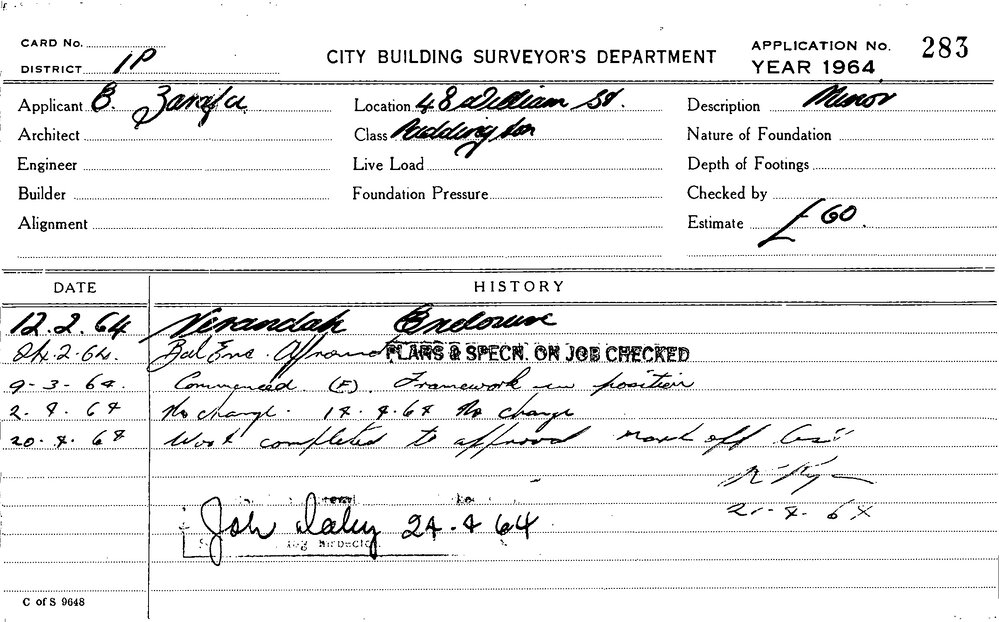 CARD No.
DISTRICT 1P
CITY BUILDING SURVEYOR'S DEPARTMENT
APPLICATION No. 283
YEAR 1964
Applicant B. Zarafa
Location 48 William St.
Description Minor
Architect
Class Paddington
Nature of Foundation
Engineer
Live Load
Depth of Footings
Builder
Foundation Pressure
Checked by
Alignment
Estimate £60.
DATE HISTORY
12.2.64 Verandah Enclosure
24.2.64. Bal Enc. Approved PLANS & SPECN. ON JOB CHECKED
9-3-64. Commenced (F). Framework in position
2.4.64 No change. 14.4.64 No change
20.4.64 Work completed to approval mark off
21-4-64
John Daley 24-4-64
C of S 9648